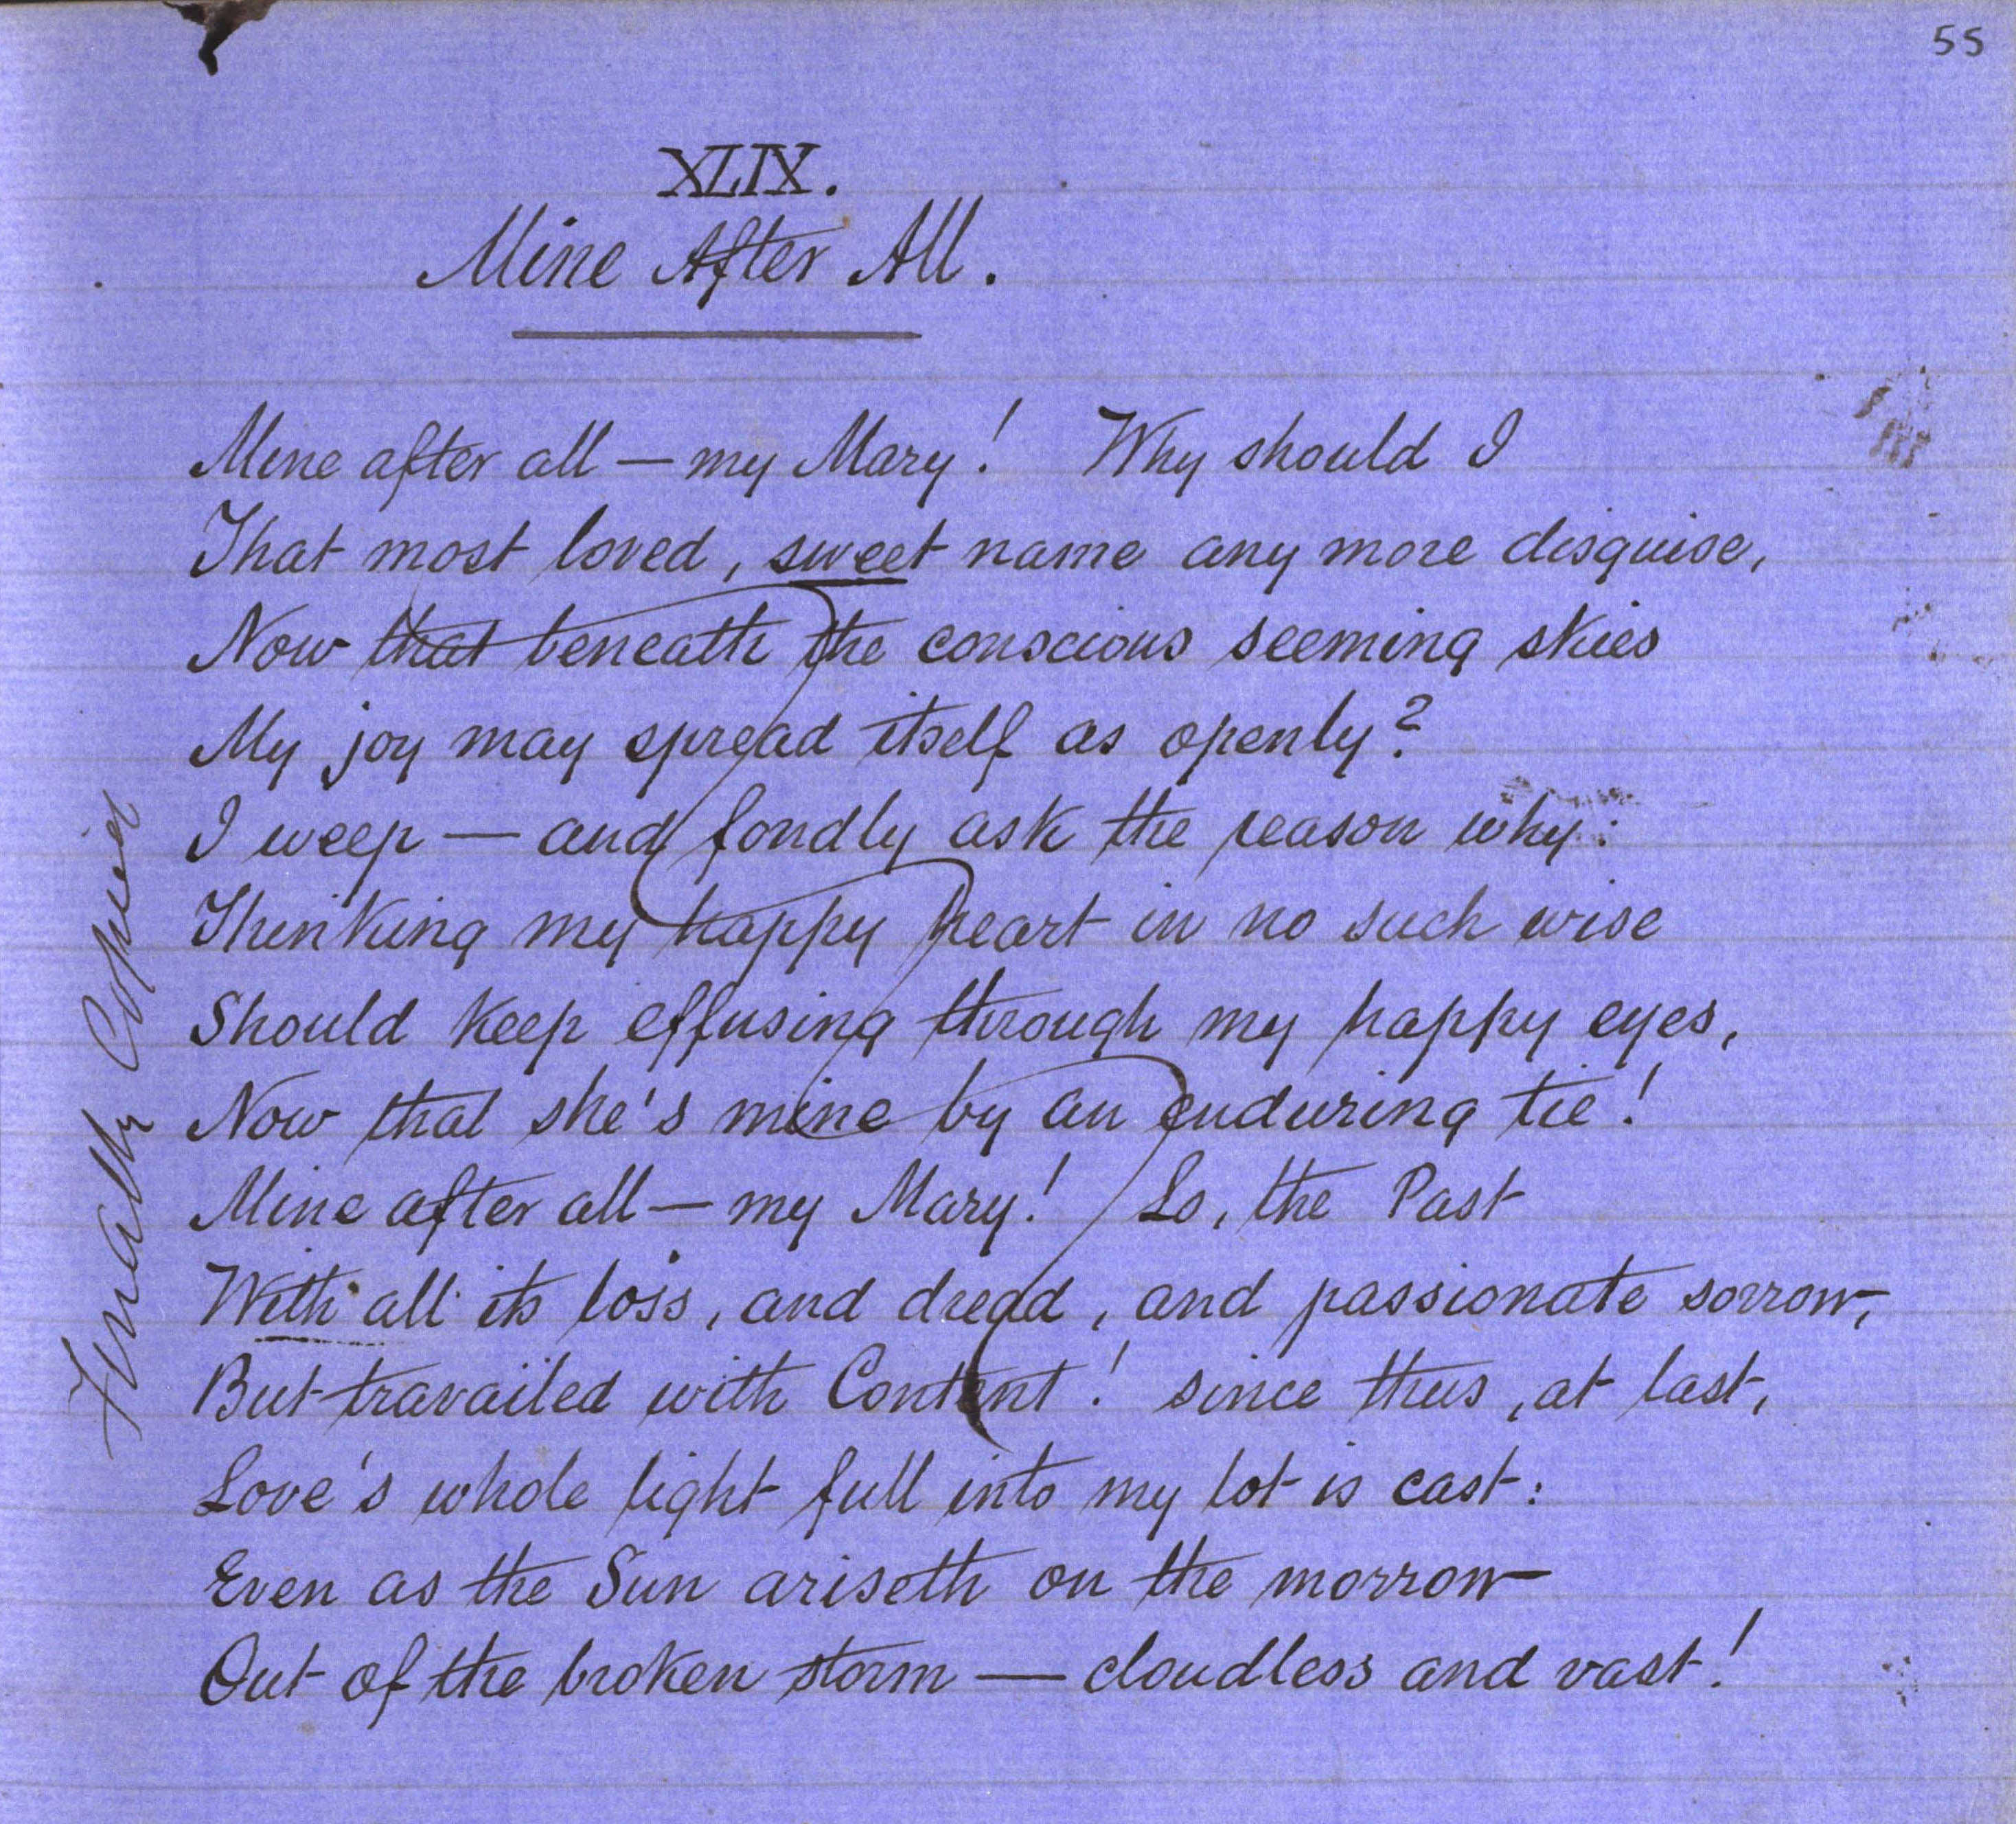 55
XLIX.
Mine After All.
Mine after all — my Mary! Why should I
That most loved, sweet name any more disguise,
Now that beneath the conscious seeming skies
My joy may spread itself as openly?
I weep — and fondly ask the reason why:
Thinking my happy heart in no such wise
Should keep effusing through my happy eyes,
Now that she's mine by an enduring tie!
Mine after all — my Mary! Lo, the Past
With all its loss, and dread, and passionate sorrow,
But travailed with Content! since thus, at last,
Love's whole light full into my lot is cast:
Even as the Sun ariseth on the morrow
Out of the broken storm — cloudless and vast!
Finally Copied